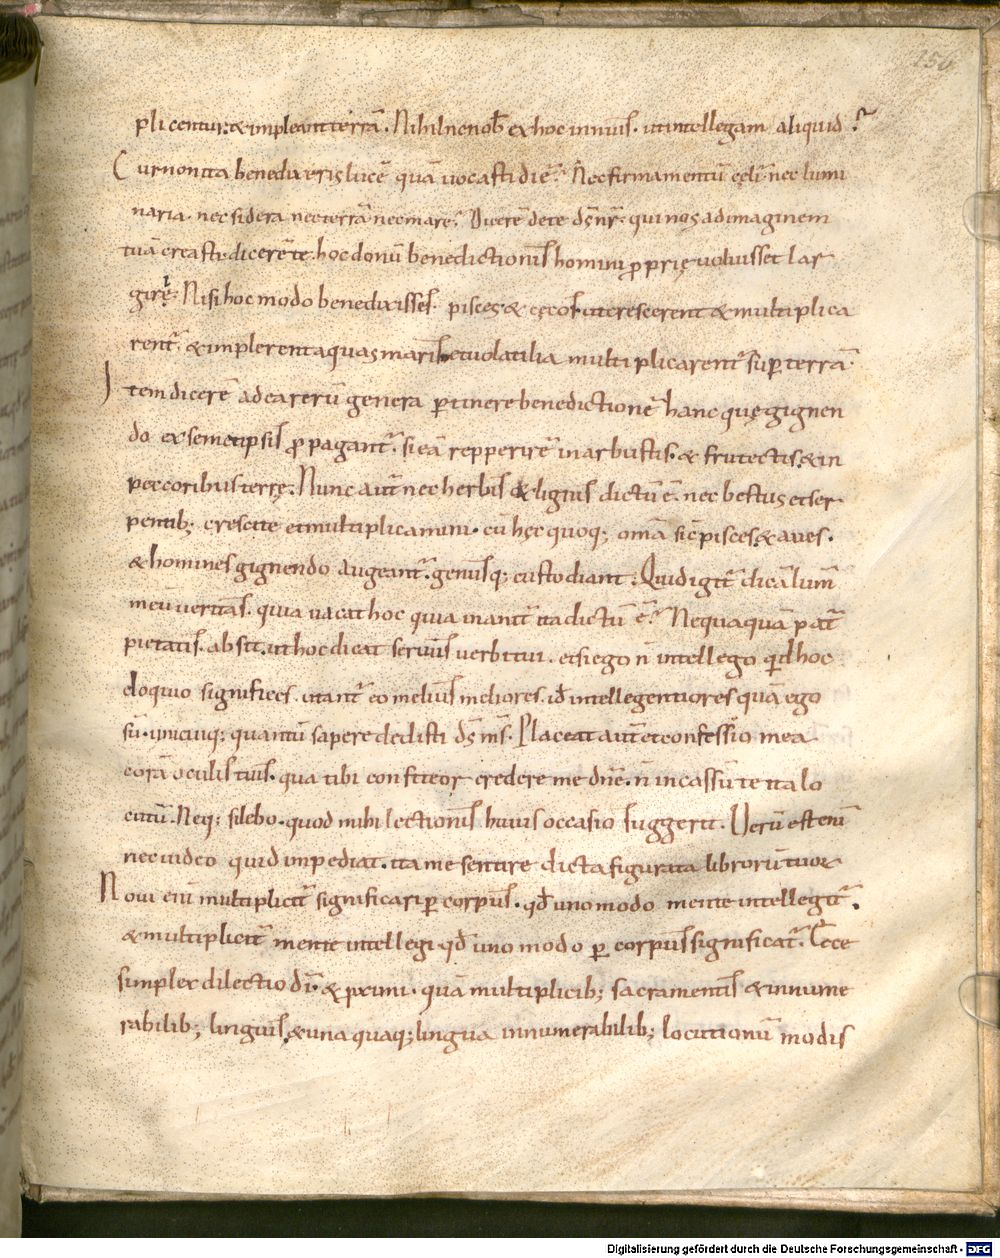 156
plicentur; & impleant terrā. Nihil ne nob̄ ex hoc innuis. ut intellegam aliquid?
Cur non ita benedixeris lucē quā uocasti diē? Nec firmamentū cęli nec lumi
naria. nec sidera nec terrā nec mare? Dicerē de te d̄s nr̄. qui nos ad imaginem
tuā creasti. dicerē te. hoc donū benedictionis homini ꝓprię uoluisset lar
girẹ̄ i. Nisi hoc modo benedixisses. pisces & cęcos. ut crescerent & multiplica
rent᷑. & implerent aquas maris et uolatilia multiplicarent᷑ suꝑ terrā.
Item dicerē ad ea rerū genera ꝑtinere benedictionē hanc quę gignen
do ex semetipsis ꝓpagant᷑. si eā repperirē in arbustis. & frutectis. & in
peccoribus terrę. Nunc aut̄ nec herbis & lignis dictū ē. nec bestiis et ser
pentib; crescite et multiplicamini. cū hęc quoq; om̄a sic̄ pisces. & aues.
& homines gignendo augeant᷑. genusq; custodiant. Quid igit᷑ dicā lum̄
meū ueritas. quia uacat hoc quia inanit᷑ ita dictū ē? Nequaquā pat᷑
pietatis. absit. ut hoc dicat seruus uerbi tui. et si ego n̄ intellego qd̄ hoc
eloquio significes. utant᷑ eo melius meliores. id̄ intellegentiores quā ego
sū. unicuiq; quantū sapere dedisti d̄s m̄s. Placeat aut̄ et confessio mea
corā oculis tuis. qua tibi confiteor credere me dn̄e. n̄ incassū te ita lo
cutū. Neq; silebo. quod mihi lectionis huius occasio suggerit. Uerū est enī
nec uideo quid impediat. ita me sentire dicta figurata librorū tuoꝝ
Noui enī multiplicit᷑ significari ꝑ corpus. qd̄ uno modo mente intellegit᷑.
& multiplicit᷑ mente intellegi qd̄ uno modo ꝑ corpus significat᷑. Ecce
simplex dilectio dī. & pximi. quā multiplicib; sacramentis & innume
rabilib; linguis. & una quaq; lingua innumerabilib; locutionū modis
Digitalisierung gefördert durch die Deutsche Forschungsgemeinschaft - DFG